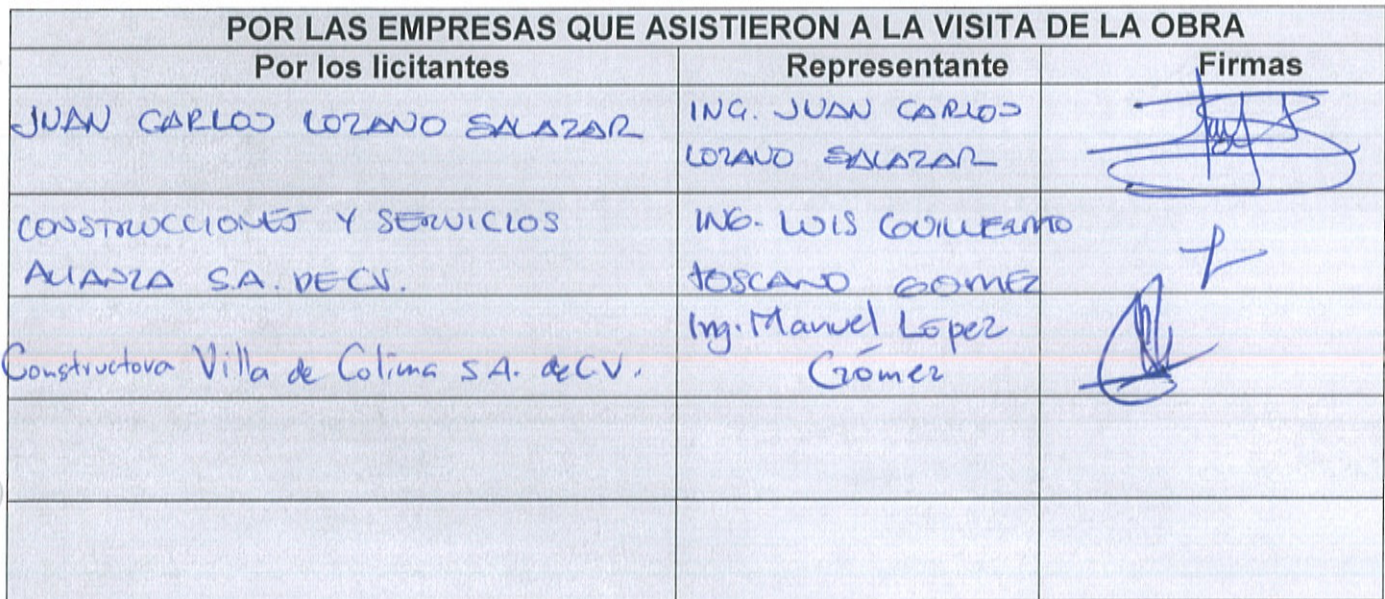 POR LAS EMPRESAS QUE ASISTIERON A LA VISITA DE LA OBRA
Por los licitantes Representante Firmas
JUAN CARLOS LOZANO SALAZAR
ING. JUAN CARLOS
LOZANO SALAZAR
CONSTRUCCIONES Y SERVICIOS
ALIANZA S.A. DE C.V.
ING. LUIS GUILLERMO
TOSCANO GOMEZ
Constructora Villa de Colima S.A. de C.V.
Ing. Manuel López
Gómez